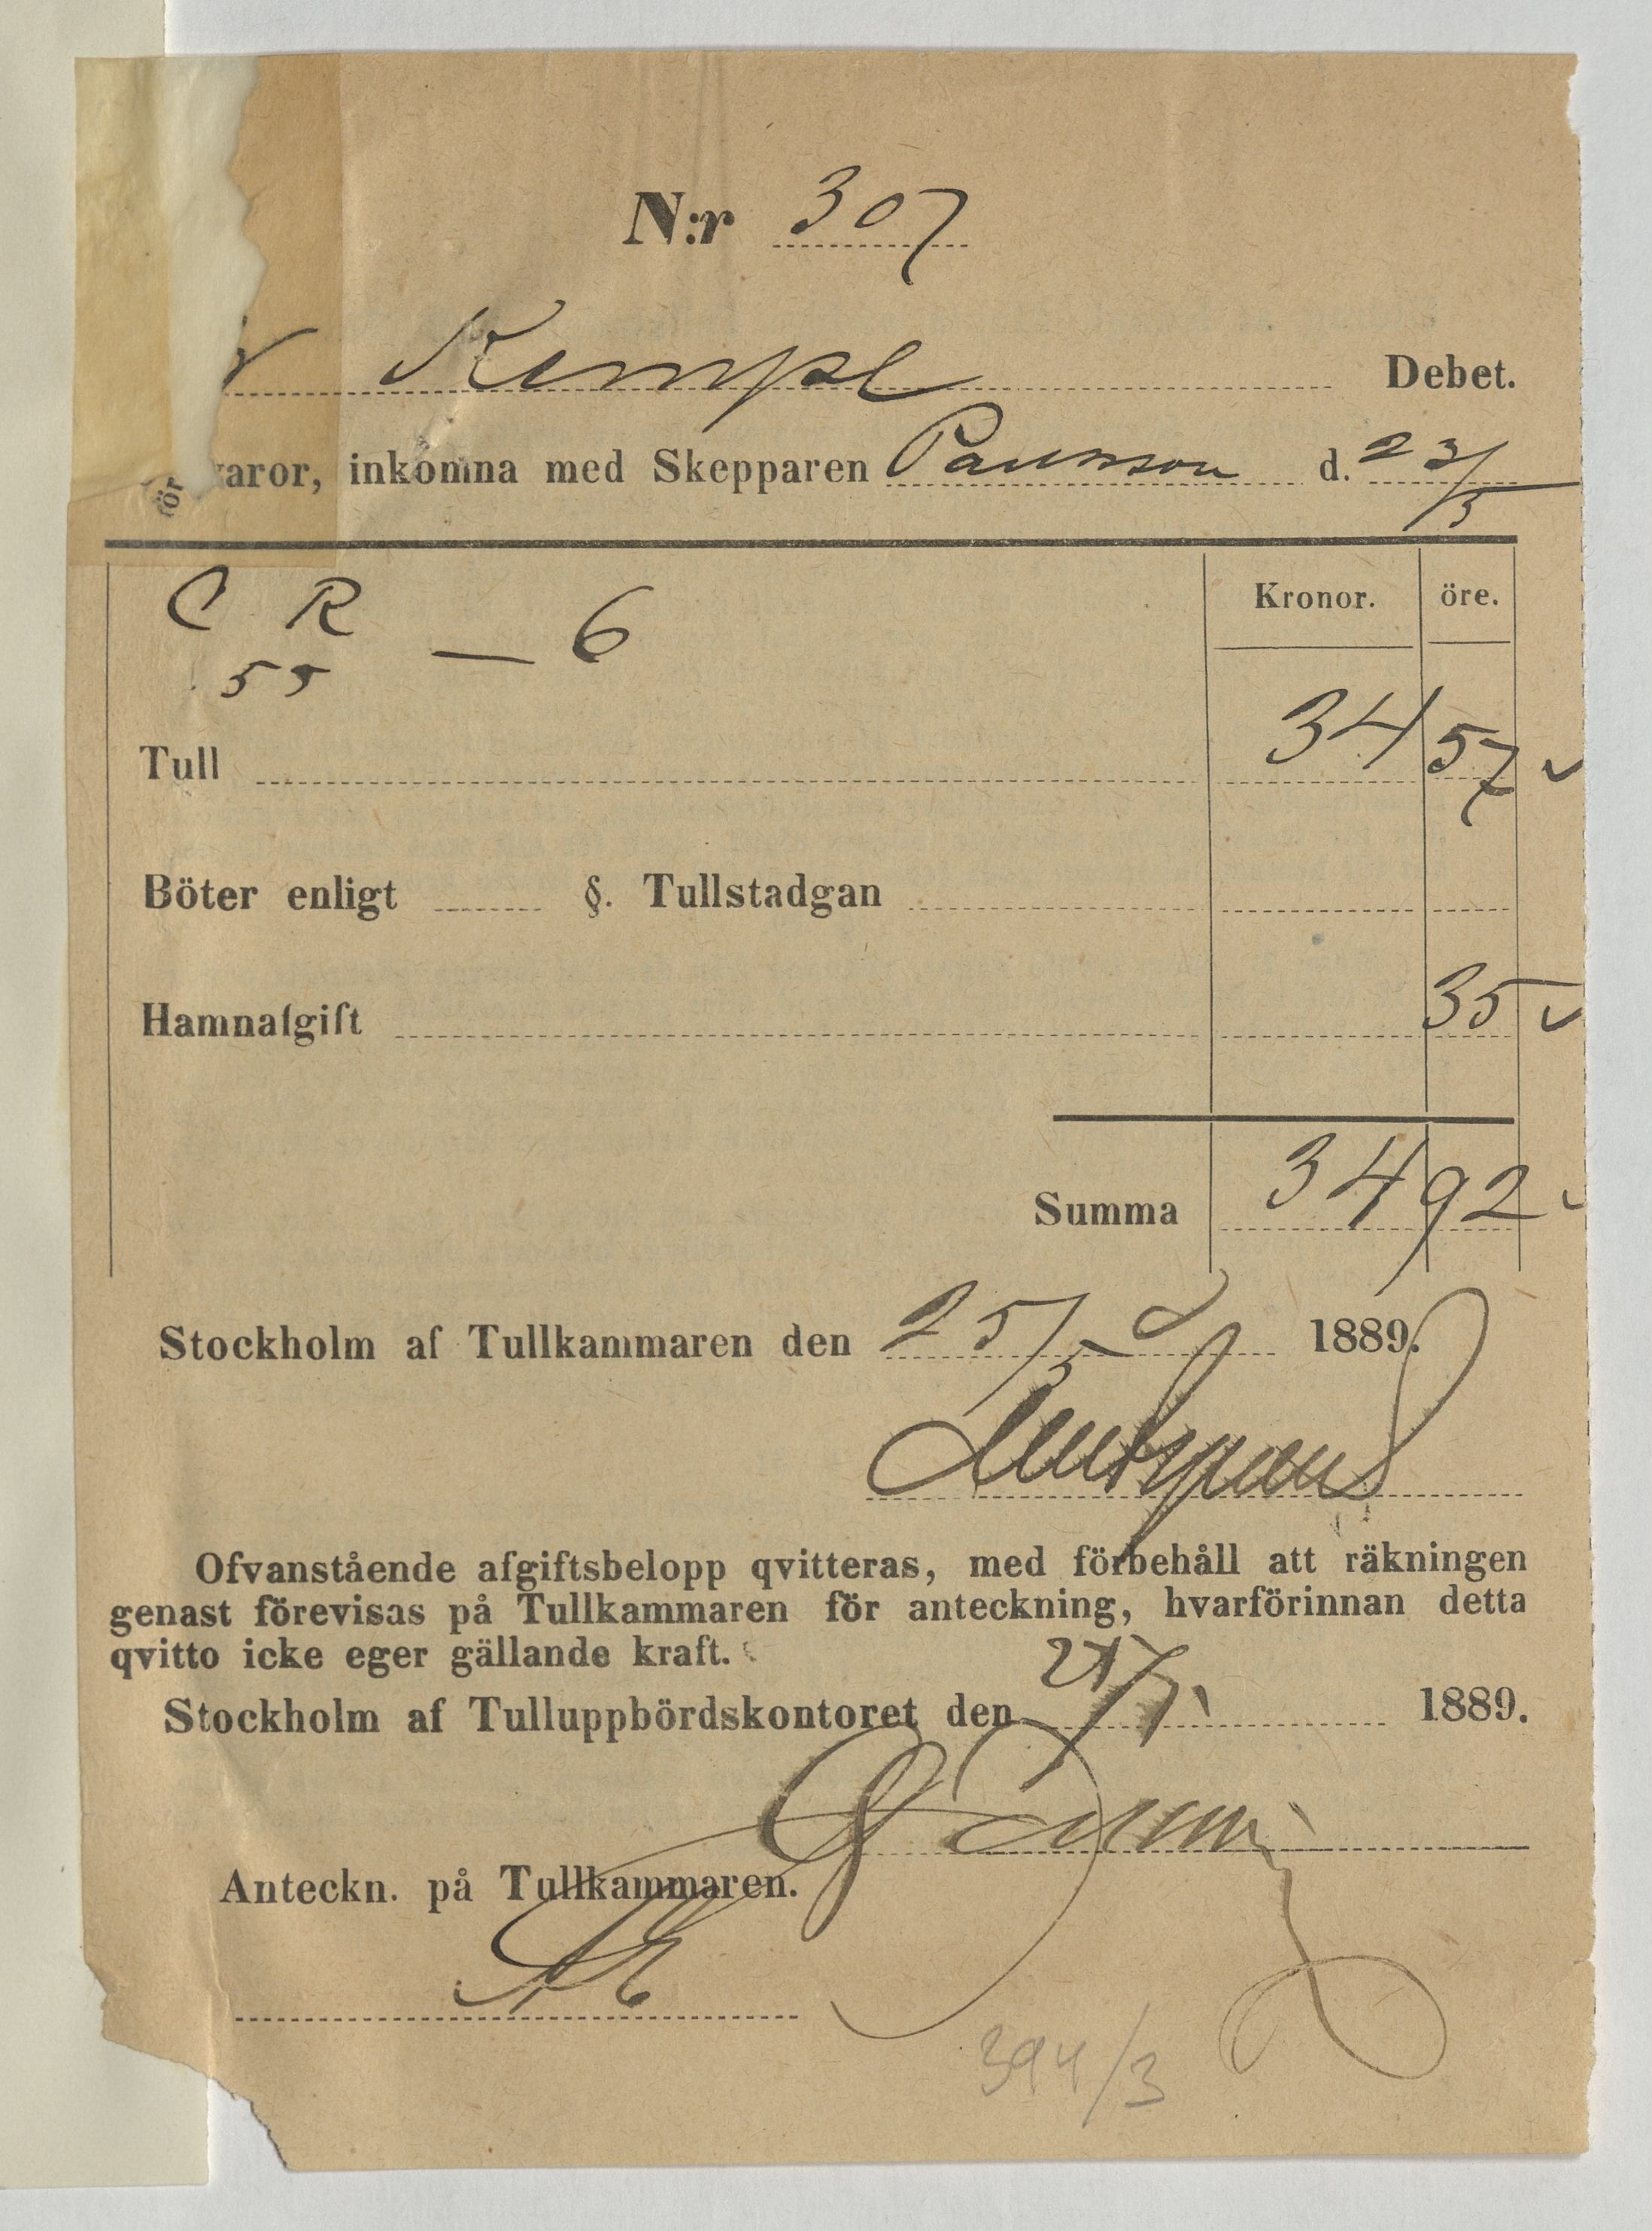 N:r 307
Kempe Debet.
för varor, inkomna med Skepparen d. 23/5
Kronor. öre.
C R — 6
55
Tull 34 57
Böter enligt §. Tullstadgan
Hamnafgift 35
Summa 34 92
Stockholm af Tullkammaren den 25/5 1889.
Ofvanstående afgiftsbelopp qvitteras, med förbehåll att räkningen
genast förevisas på Tullkammaren för anteckning, hvarförinnan detta
qvitto icke eger gällande kraft.
Stockholm af Tulluppbördskontoret den 1889.
Anteckn. på Tullkammaren.
394/3